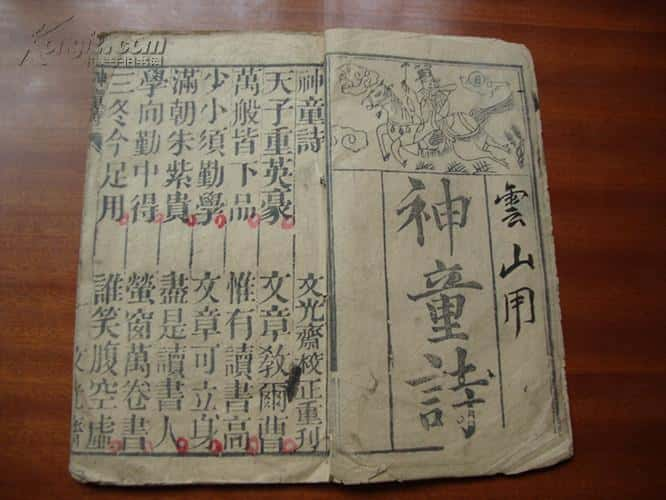 雲山用
神童詩
神童詩 文光齋校正重刊
天子重英豪 文章教爾曹
萬般皆下品 惟有讀書高
少小須勤學 文章可立身
滿朝朱紫貴 盡是讀書人
學向勤中得 螢窗萬卷書
三冬今足用 誰笑腹空虛
神童詩 文光齋